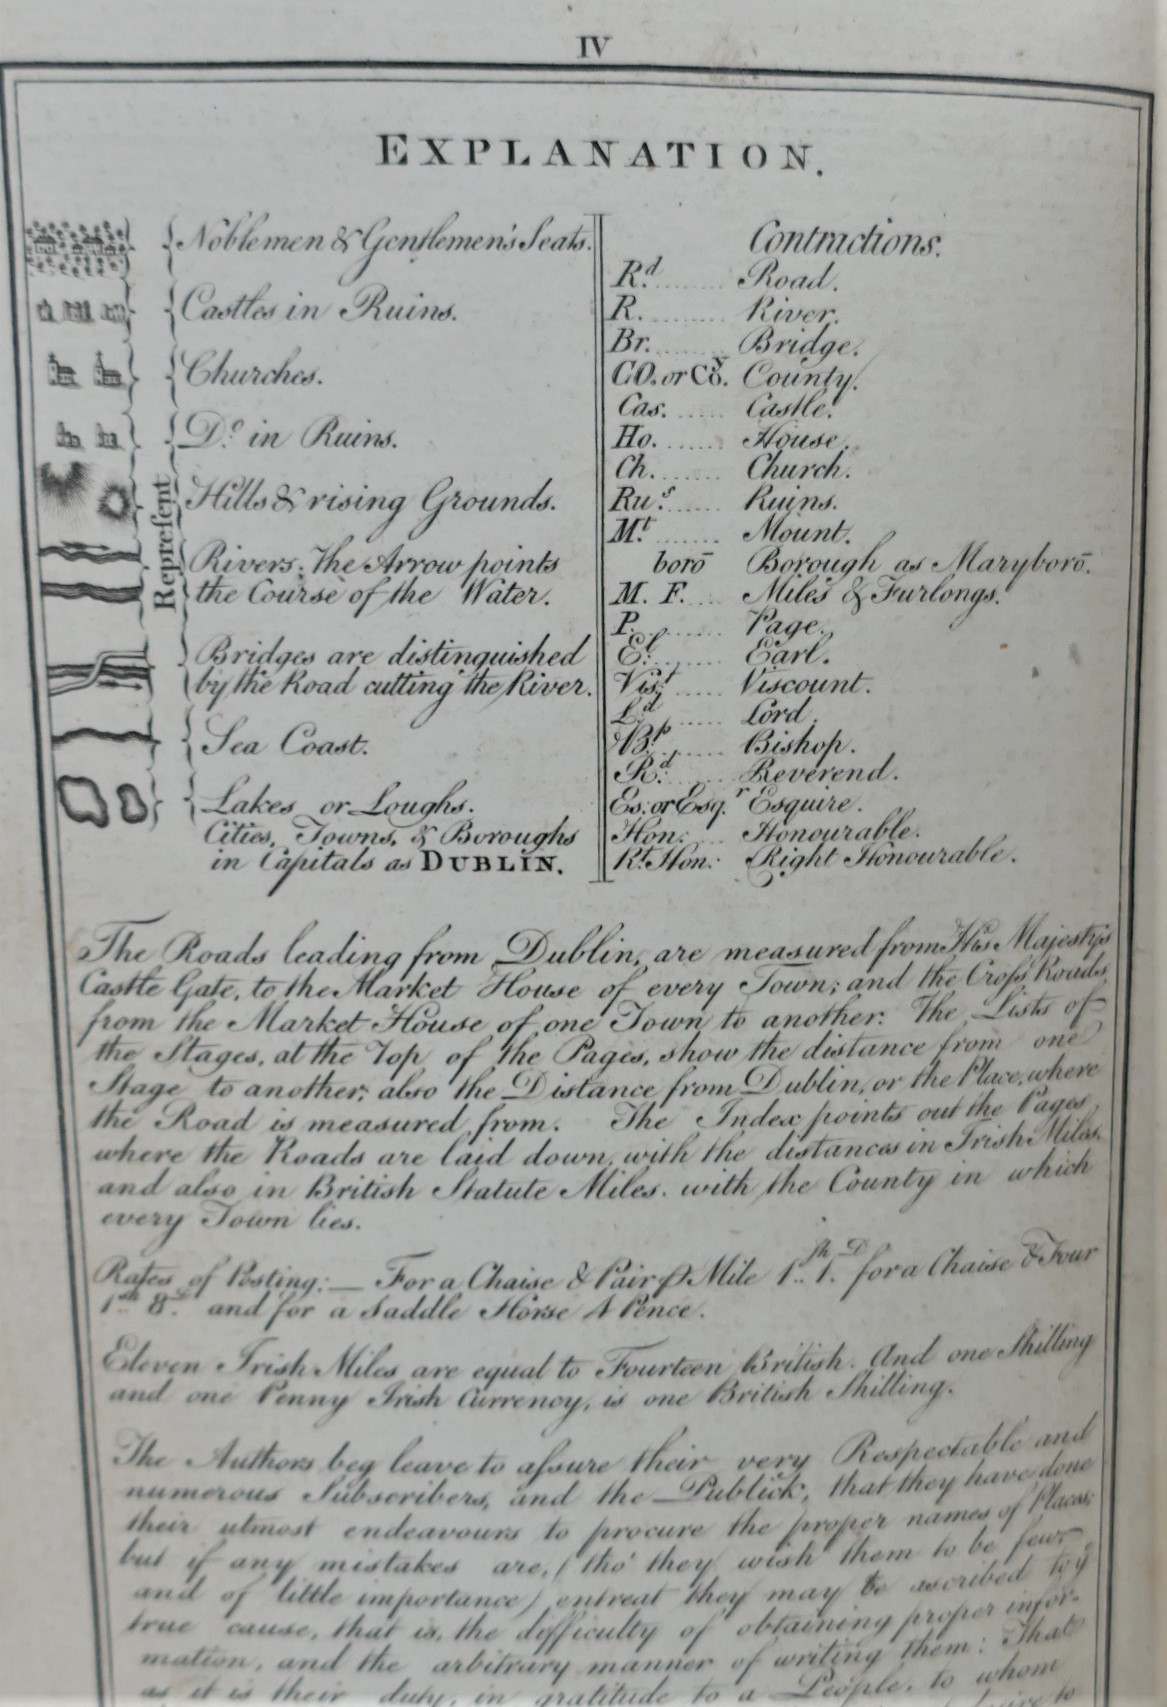 IV
EXPLANATION.
Noblemen & Gentlemen's Seats.
Castles in Ruins.
Churches.
D.o in Ruins.
Hills & rising Grounds.
Represent
Rivers; the Arrow points
the Course of the Water.
Bridges are distinguished
by the Road cutting the River.
Sea Coast.
Lakes or Loughs.
Cities, Towns, & Boroughs
in Capitals as DUBLIN.
Contractions.
R.d ........ Road.
R. ......... River.
Br. ........ Bridge.
CO. or Coy. County.
Cas. ...... Castle.
Ho. ....... House.
Ch. ....... Church.
Ru.s ...... Ruins.
M.t ....... Mount.
borō Borough as Maryborō.
M. F. .... Miles & Furlongs.
P. ........ Page.
E.l ....... Earl.
Vis.t ..... Viscount.
L.d ....... Lord.
B.p ....... Bishop.
R.d ....... Reverend.
Es. or Esq.r Esquire.
Hon: .... Honourable.
Rt. Hon: Right Honourable.
The Roads leading from Dublin, are measured from His Majesty's
Castle Gate, to the Market House of every Town; and the Croſs Roads
from the Market House of one Town to another. The Lists of
the Stages, at the Top of the Pages, show the distance from one
Stage to another; also the Distance from Dublin, or the Place, where
the Road is measured from. The Index points out the Pages
where the Roads are laid down, with the distances in Irish Miles,
and also in British Statute Miles. with the County in which
every Town lies.
Rates of Posting: — For a Chaise & Pair ⅌ Mile 1.sh 1.D for a Chaise & Four
1.sh 8.D and for a Saddle Horse 4 Pence.
Eleven Irish Miles are equal to Fourteen British. And one Shilling
and one Penny Irish Currency, is one British Shilling.
The Authors beg leave to aſsure their very Respectable and
numerous Subscribers, and the Publick, that they have done
their utmost endeavours to procure the proper names of Places;
but if any mistakes are, (tho' they wish them to be few,
and of little importance) entreat they may be ascribed to ye
true cause, that is, the difficulty of obtaining proper infor-
mation, and the arbitrary manner of writing them: That
as it is their duty, in gratitude to a People, to whom
to